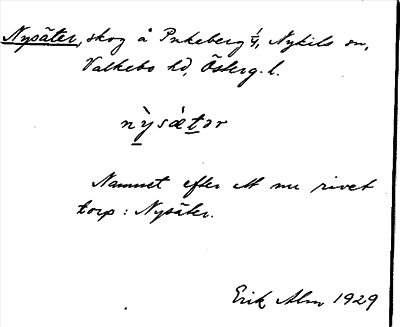 Nysäter, skog å Pukeberg 1/4, Nykils sn,
Valkebo hd, Österg. l.
nỳsæ̀tər
Namnet efter ett nu rivet
torp: Nysäter.
Erik Alm 1929